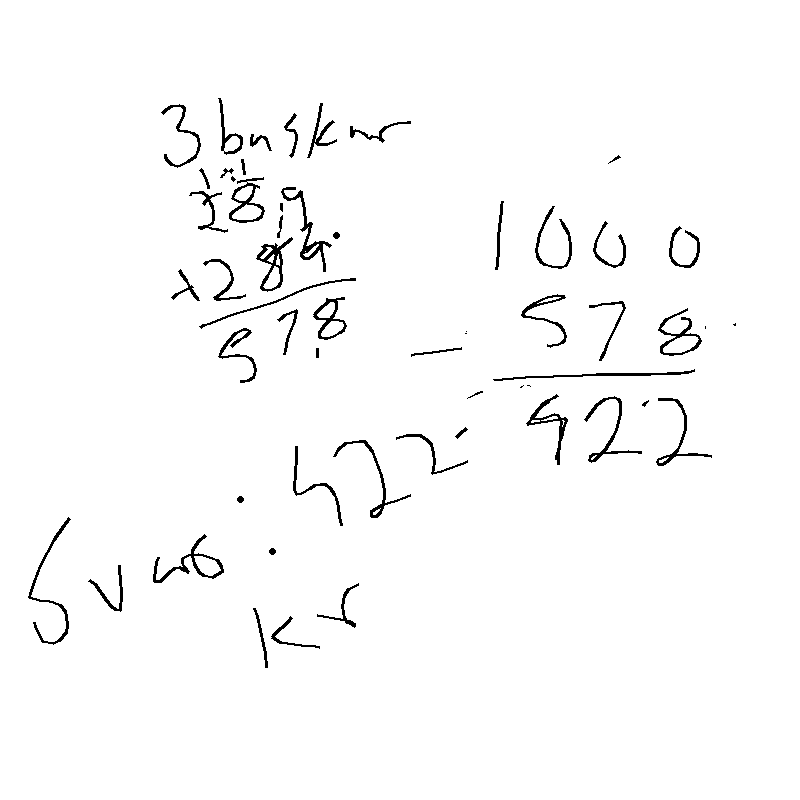 3 
289
+289
578
1000
- 578
422
Svar: 422
kr